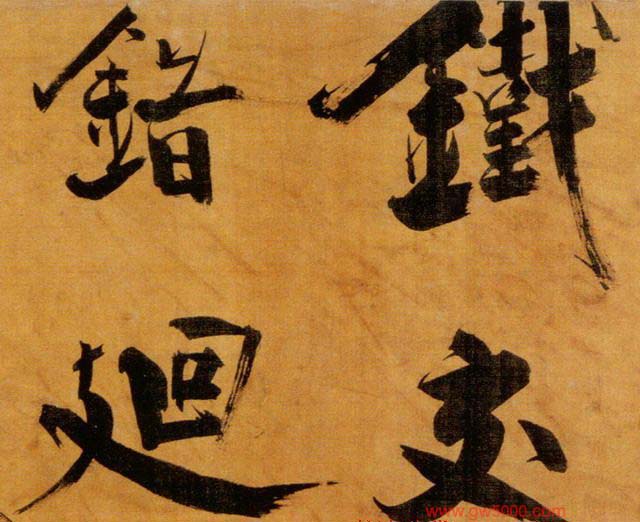 鐵交
錯廻
www.gw5000.com